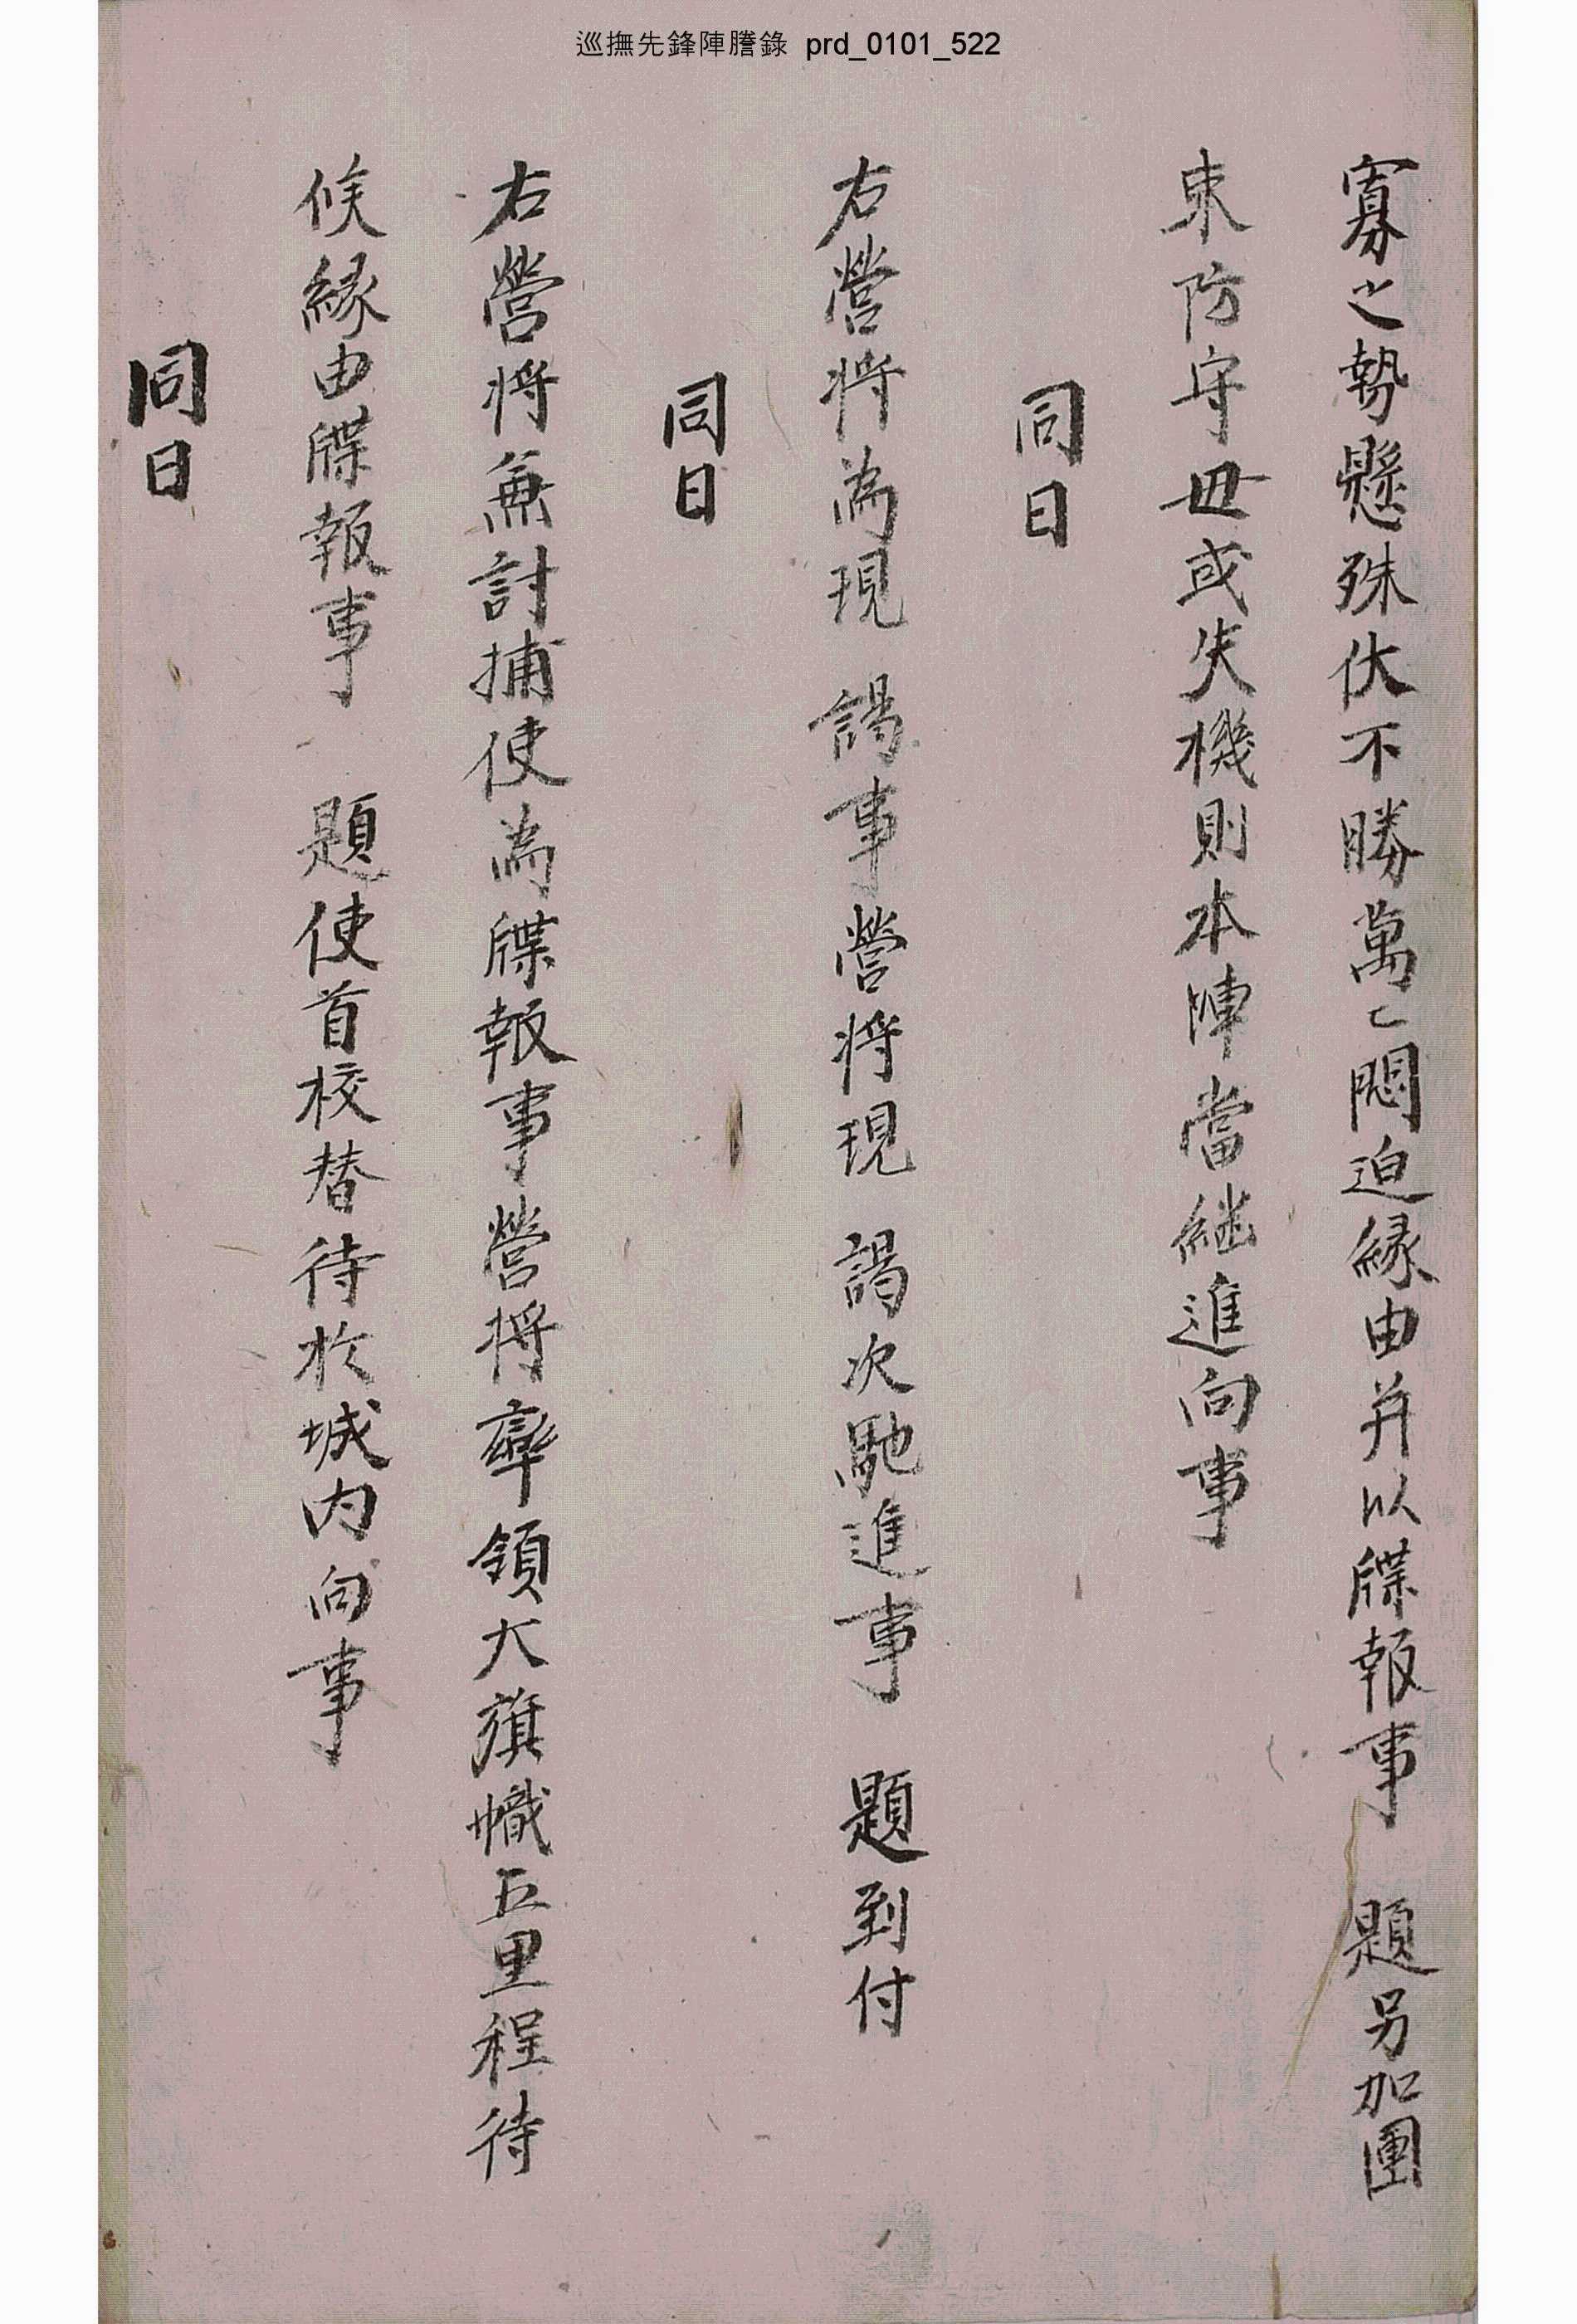 巡撫先鋒陣謄錄 prd_0101_522
寡之勢懸殊伏不勝萬〻悶迫緣由并以牒報事 題另加團
束防守毋或失機則本陣當継進向事
同日
右營將為現 謁事營將現 謁次馳進事 題到付
同日
右營將兼討捕使為牒報事營將率領大旗幟五里程待
候緣由牒報事 題使首校替待於城内向事
同日